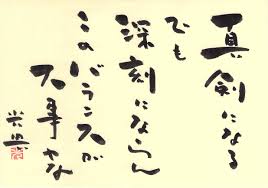 真剣になる
でも
深刻にならん
このバランスが
大事やな